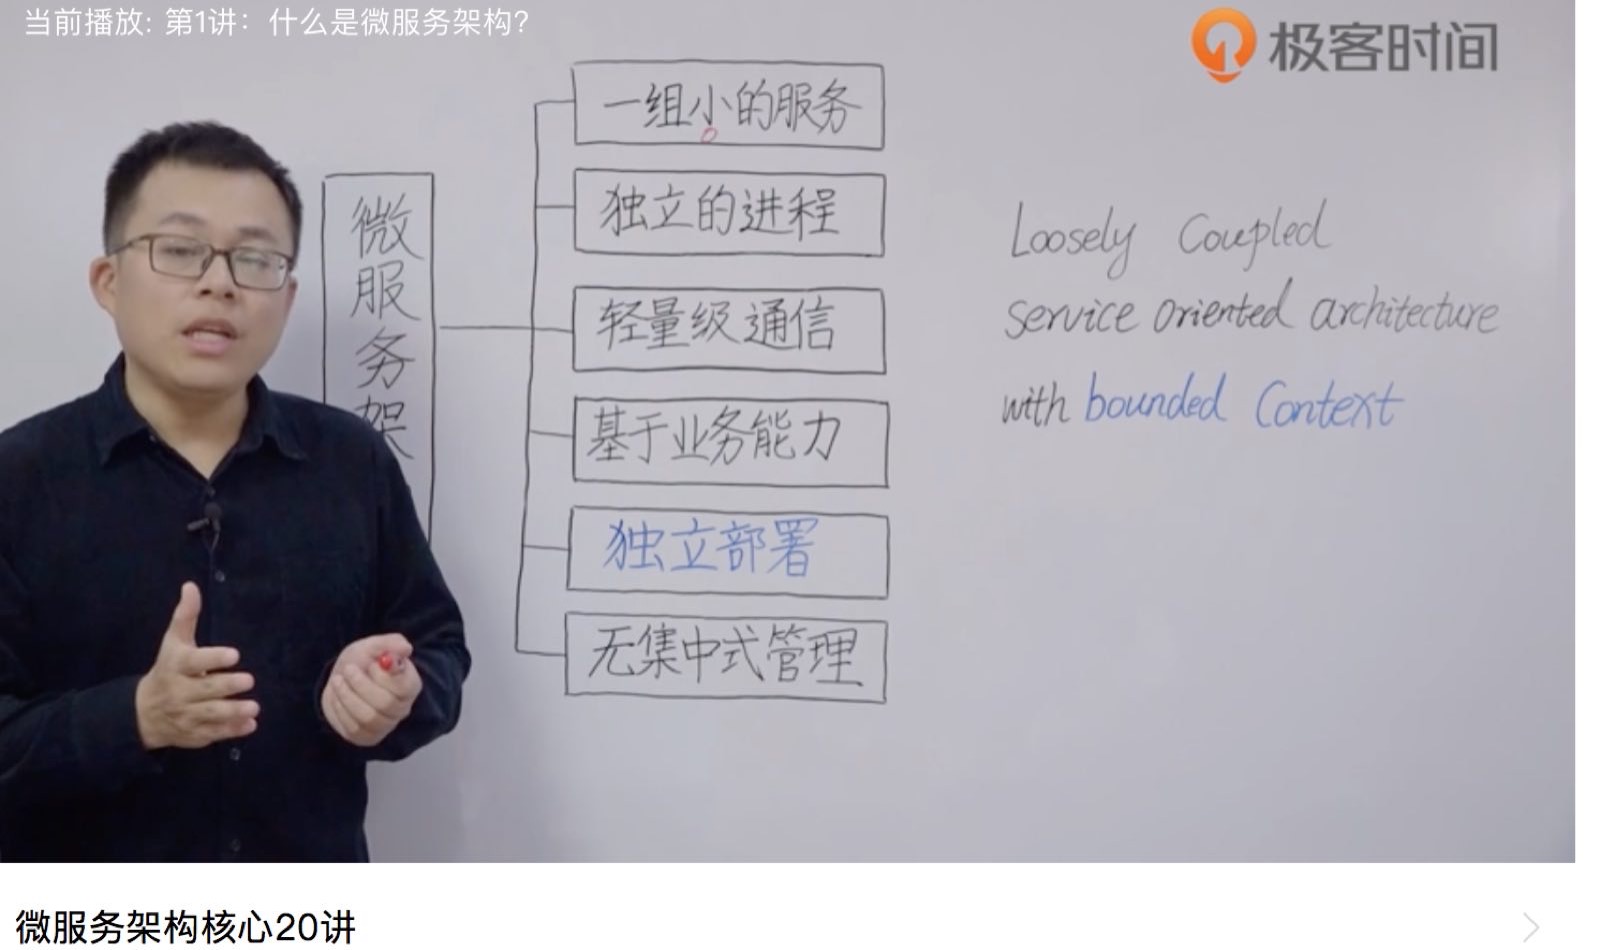 当前播放: 第1讲：什么是微服务架构?
极客时间
微服务架
一组小的服务
独立的进程
轻量级通信
基于业务能力
独立部署
无集中式管理
Loosely Coupled
service oriented architecture
with bounded Context
微服务架构核心20讲